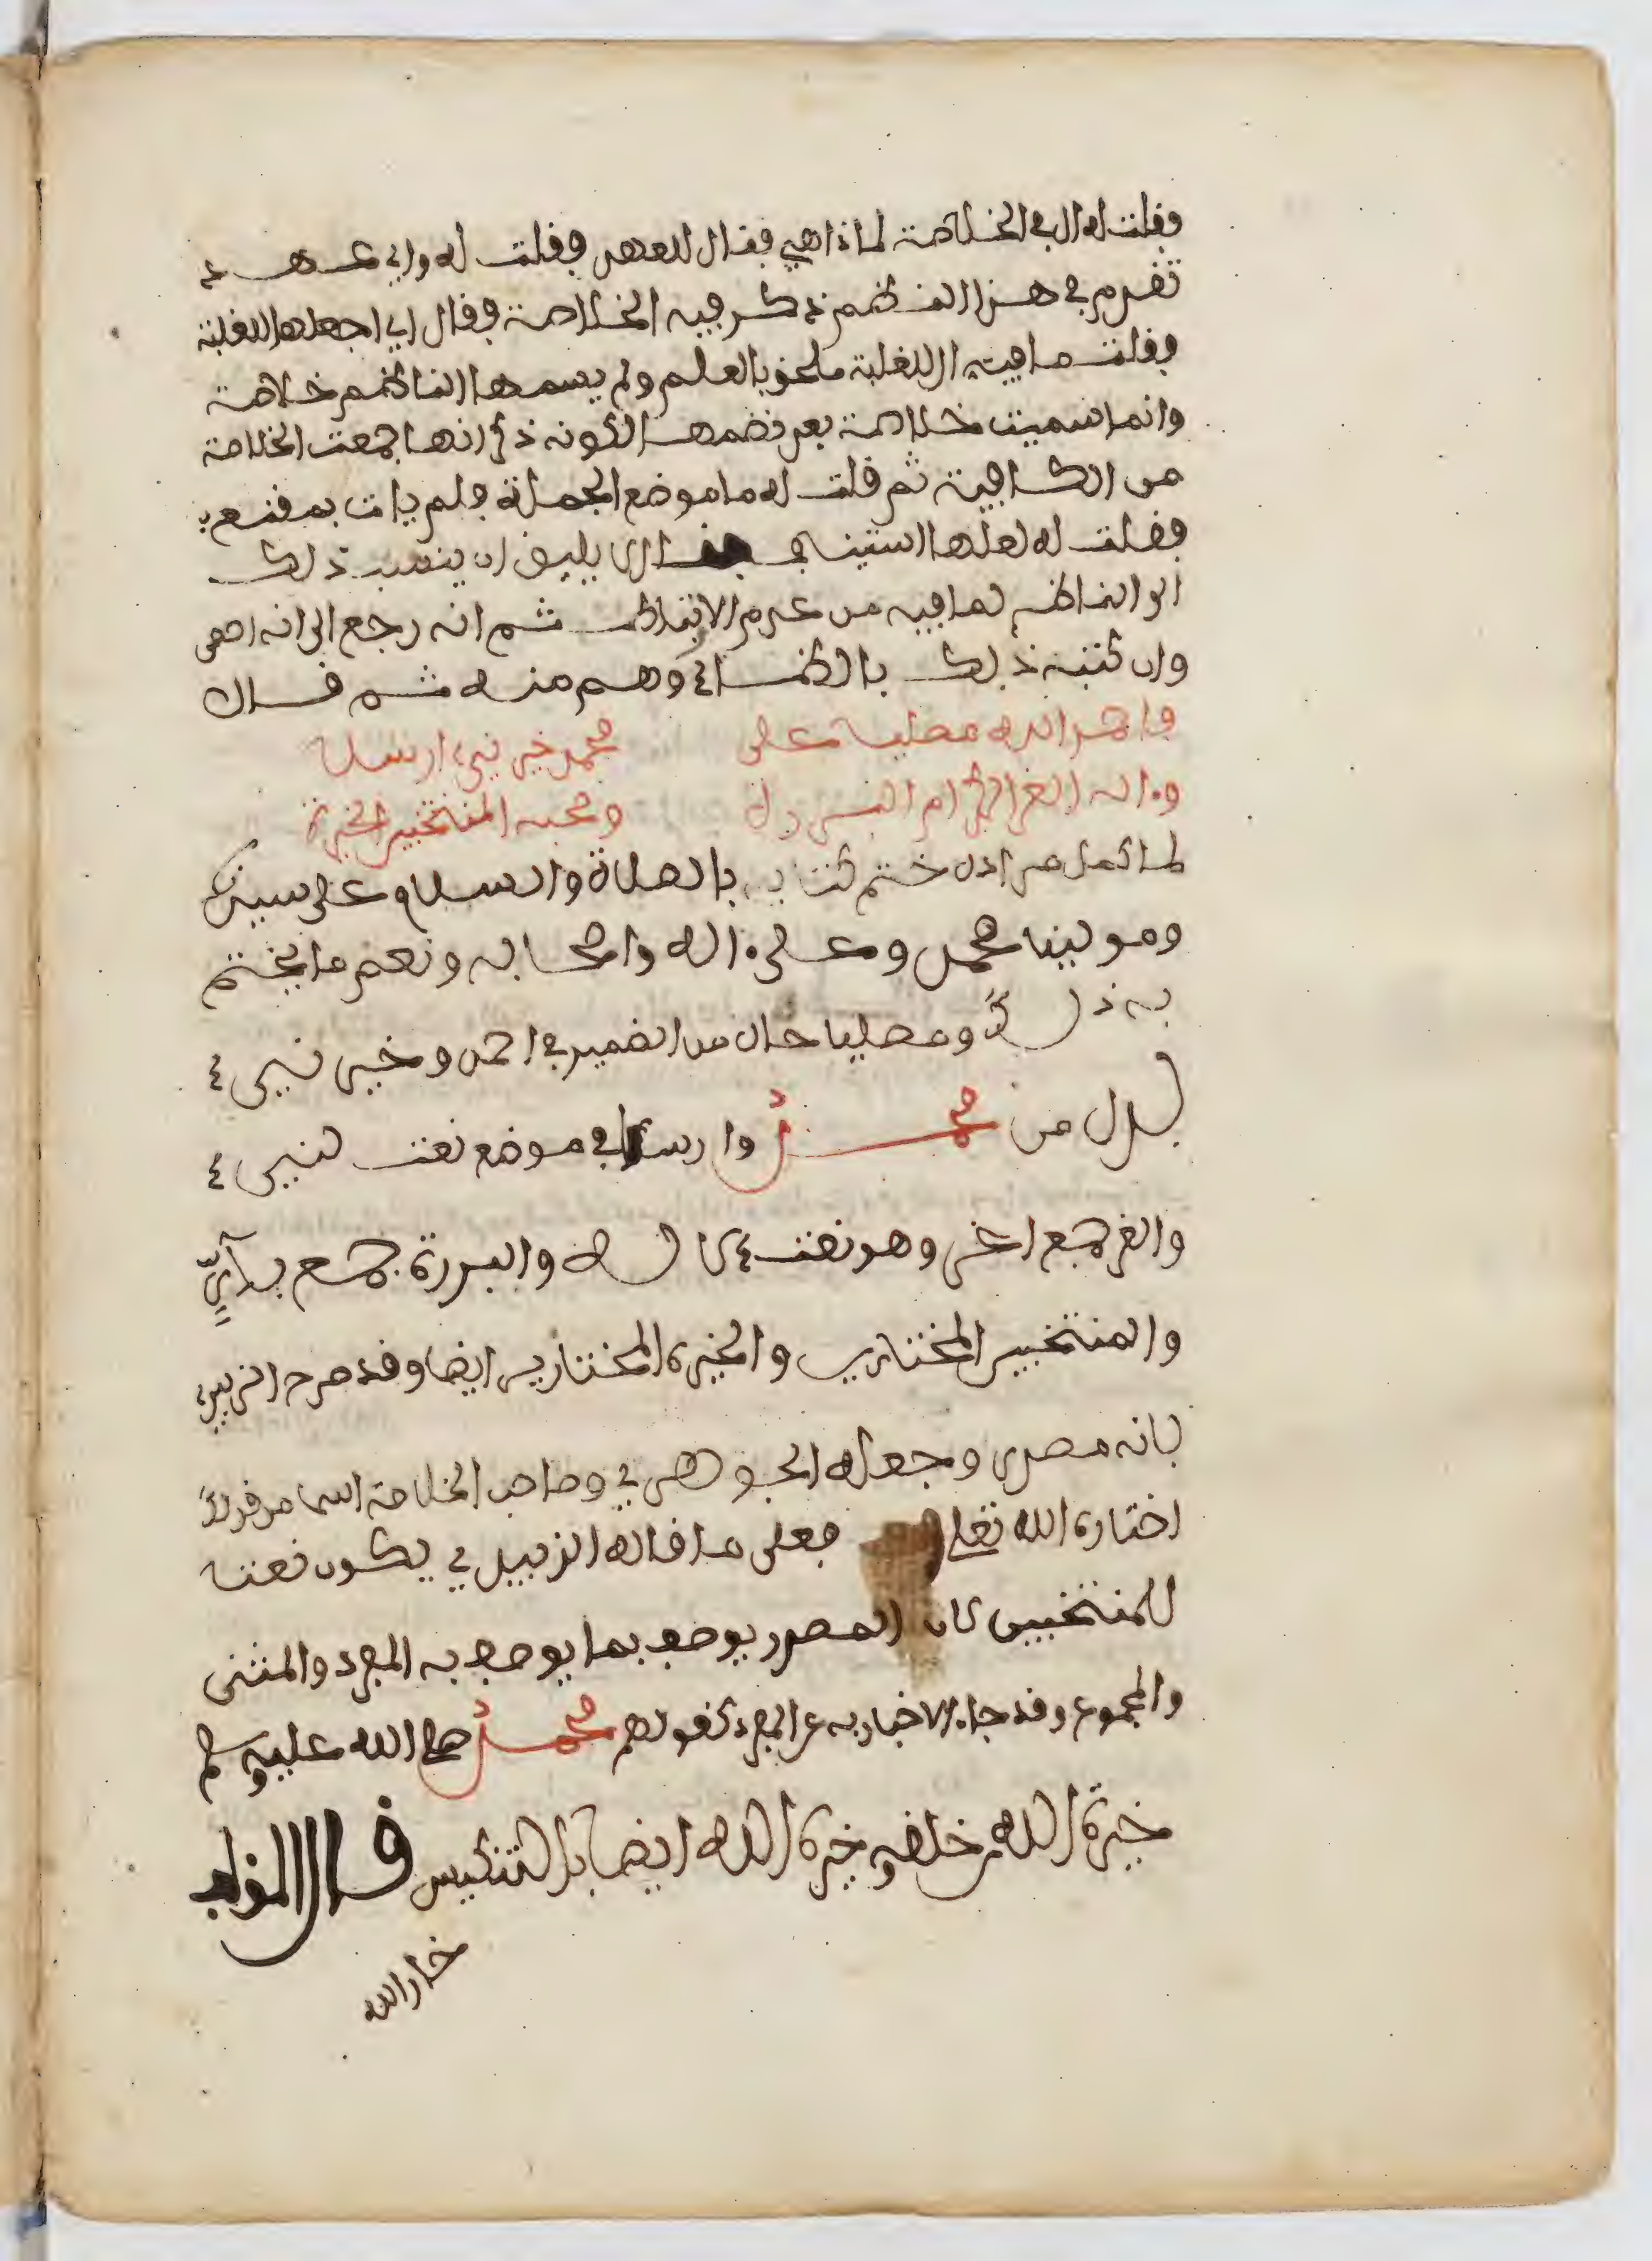 فقلت له ال في الخلاصة لماذا هي فقال للعهد فقلت له واي عهد
تقدم في هذا النظم ذكر فيه الخلاصة فقال اي اجعلها للغلبة
فقلت ما فيه ال للغلبة ملحق بالعلم ولم يسمها الناظم خلاصة
وانما سميت خلاصة بعد نضمها لكونه ذكر انها جمعت الخلاصة
من الكافية ثم قلت له ما موضع الجملة فلم يات بمقنع
فقلت له لعلها استيناف يليق ان ينسب ذلك
الى الناظم لما فيه من عدم الانتظام ثم انه رجع الى انه احصى
وان كتبه ذلك بالظاء وهم منه ثم قال
فاحمد الله مصليا على محمد خير نبيء ارسلا
وءاله الغر الكرام البررة وصحبه المنتخبين الخيرة
لما كمل مراده ختم كتابه بالصلاة والسلام على سيدنا
ومولينا محمد وعلى ءاله واصحابه ونعم ما يختم
به ذلك ومصليا حال من الضمير في احمد وخير نبيء
بدل من محمد وارسلا في موضع نعت لنبيء
والغر جمع اغر وهو نعت لاله والبررة جمع بار
والمنتخبين المختارين والخيرة المختارين ايضا وقد صرح الزبيدي
بانه مصدر وجعله الجوهري وصاحب الخلاصة اسما من قولك
اختاره الله تعلى فعلى ما قاله الزبيدي يكون نعتا
للمنتخبين لان المصدر يوصف بما يوصف به المفرد والمثنى
والمجموع وقد جاء الاخبار به عن المفرد كقولهم محمد صلى الله عليه وسلم
خيرة الله من خلقه وخيرة الله ايضا بالتسكين قال المؤلف
خار الله